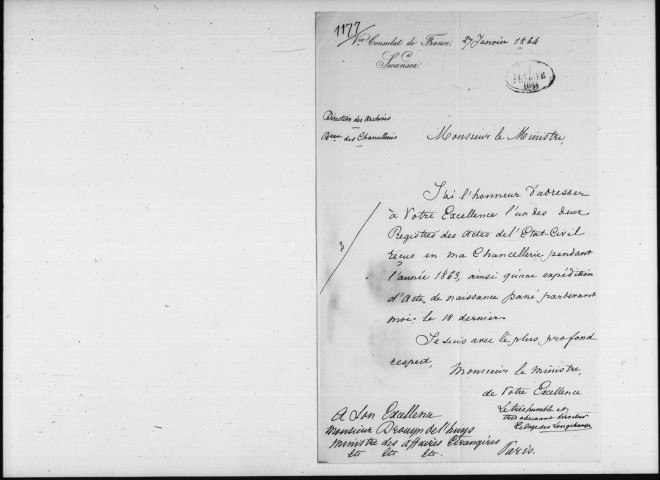 1177
Vce Consulat de France 27 Janvier 1864
à
Swansea
Direction des Archives
Beau des Chancelleries
Monsieur le Ministre,
J'ai l'honneur d'adresser
à Votre Excellence l'un des deux
Registres des Actes de l'Etat-Civil
reçus en ma Chancellerie pendant
l'année 1863, ainsi qu'une expédition
d'Acte de naissance passé pardevant
moi, le 18 dernier.
Je suis avec le plus profond
respect,
Monsieur le ministre,
de Votre Excellence
Le très humble et
très obéissant serviteur
A Son Excellence
Monsieur Drouyn de l'huys
Ministre des affaires Etrangères
Etc Etc Etc. Paris.